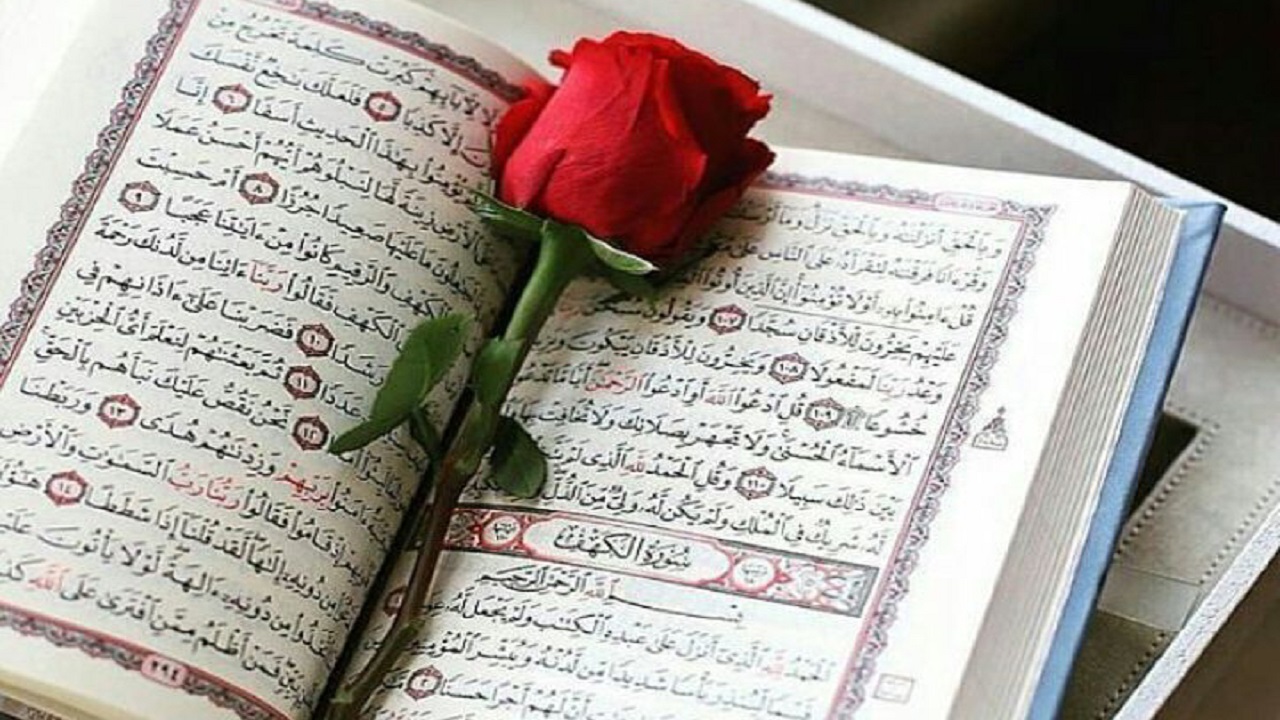 وَبِٱلْحَقِّ أَنزَلْنَٰهُ وَبِٱلْحَقِّ نَزَلَ وَمَآ
وَقُرْءَانًا فَرَقْنَٰهُ لِتَقْرَأَهُۥ عَلَى ٱلنَّاسِ عَلَىٰ
قُلْ ءَامِنُوا۟ بِهِۦٓ أَوْ لَا تُؤْمِنُوٓا۟ إِنَّ ٱلَّذِينَ أُوتُوا۟
عَلَيْهِمْ يَخِرُّونَ لِلْأَذْقَانِ سُجَّدًا ١٠٧ وَيَقُولُونَ سُبْحَٰنَ
وَعْدُ رَبِّنَا لَمَفْعُولًا ١٠٨ وَيَخِرُّونَ لِلْأَذْقَانِ يَبْكُونَ
خُشُوعًا ۩ ١٠٩ قُلِ ٱدْعُوا۟ ٱللَّهَ أَوِ ٱدْعُوا۟ ٱلرَّحْمَٰنَ أَيًّا مَّا
ٱلْأَسْمَآءُ ٱلْحُسْنَىٰ وَلَا تَجْهَرْ بِصَلَاتِكَ وَلَا تُخَافِتْ بِهَا
بَيْنَ ذَٰلِكَ سَبِيلًا ١١٠ وَقُلِ ٱلْحَمْدُ لِلَّهِ ٱلَّذِى لَمْ
لَّهُۥ شَرِيكٌ فِى ٱلْمُلْكِ وَلَمْ يَكُن لَّهُۥ وَلِىٌّ مِّنَ ٱلذُّلِّ
سُورَةُ ٱلْكَهْفِ
بِسْمِ ٱللَّهِ ٱلرَّحْمَٰنِ ٱلرَّحِيمِ
ٱلْحَمْدُ لِلَّهِ ٱلَّذِىٓ أَنزَلَ عَلَىٰ عَبْدِهِ ٱلْكِتَٰبَ وَلَمْ يَجْعَل لَّهُۥ
قَيِّمًا لِّيُنذِرَ بَأْسًا شَدِيدًا مِّن لَّدُنْهُ وَيُبَشِّرَ ٱلْمُؤْمِنِينَ
أَنَّ لَهُمْ أَجْرًا حَسَنًا ٢
لِءَابَآئِهِمْ كَبُرَتْ كَلِمَةً تَخْرُجُ مِنْ
إِلَّا كَذِبًا ٥ فَلَعَلَّكَ بَٰخِعٌ نَّفْسَكَ
يُؤْمِنُوا۟ بِهَٰذَا ٱلْحَدِيثِ أَسَفًا ٦ إِنَّا
ٱلْأَرْضِ زِينَةً لَّهَا لِنَبْلُوَهُمْ أَيُّهُمْ أَحْسَنُ عَمَلًا
لَجَٰعِلُونَ مَا عَلَيْهَا صَعِيدًا جُرُزًا ٨ أَمْ حَسِبْتَ
ٱلْكَهْفِ وَٱلرَّقِيمِ كَانُوا۟ مِنْ ءَايَٰتِنَا عَجَبًا ٩
ٱلْكَهْفِ فَقَالُوا۟ رَبَّنَآ ءَاتِنَا مِن لَّدُنكَ رَحْمَةً
رَشَدًا ١٠ فَضَرَبْنَا عَلَىٰٓ ءَاذَانِهِمْ فِى
عَدَدًا ١١ ثُمَّ بَعَثْنَٰهُمْ لِنَعْلَمَ أَىُّ ٱلْحِزْبَيْنِ
١٢ نَّحْنُ نَقُصُّ عَلَيْكَ نَبَأَهُم بِٱلْحَقِّ
ءَامَنُوا۟ بِرَبِّهِمْ وَزِدْنَٰهُمْ هُدًى ١٣ وَرَبَطْنَا
إِذْ قَامُوا۟ فَقَالُوا۟ رَبُّنَا رَبُّ ٱلسَّمَٰوَٰتِ وَٱلْأَرْضِ
مِن دُونِهِۦٓ إِلَٰهًا لَّقَدْ قُلْنَآ إِذًا شَطَطًا ١٤ هَٰٓؤُلَآءِ
مِن دُونِهِۦٓ ءَالِهَةً لَّوْلَا يَأْتُونَ
فَمَنْ أَظْلَمُ مِمَّنِ ٱفْتَرَىٰ عَلَى ٱللَّهِ
٢٩٤